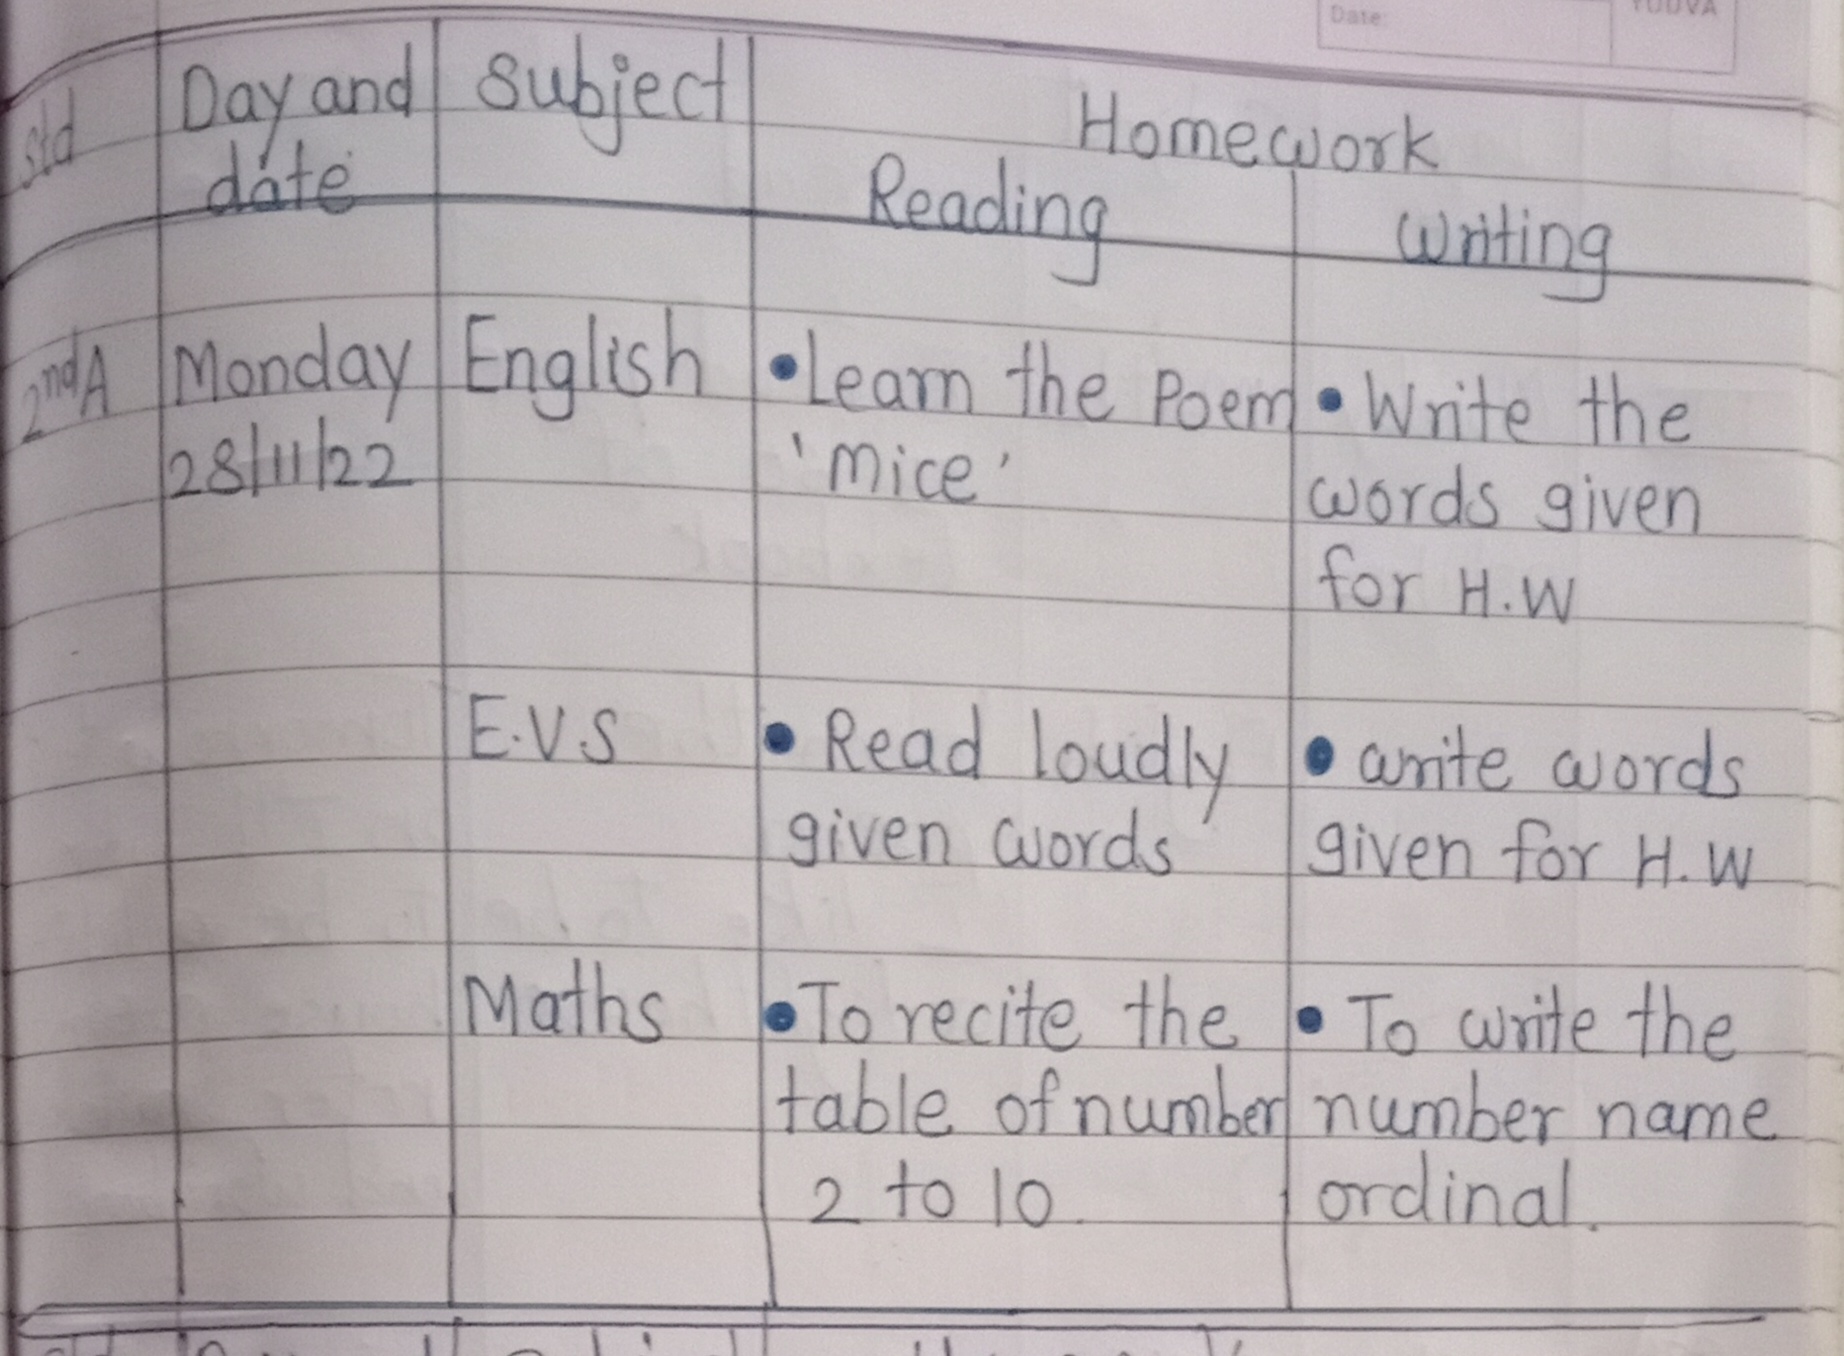 Date:
YOUVA
std
Day and
date
Subject
Homework
Reading
Writing
2nd A
Monday
28/11/22
English
• Learn the Poem
'mice'
• Write the
words given
for H.W
E.V.S
• Read loudly
given words
• write words
given for H.W
Maths
• To recite the
table of number
2 to 10.
• To write the
number name
ordinal.